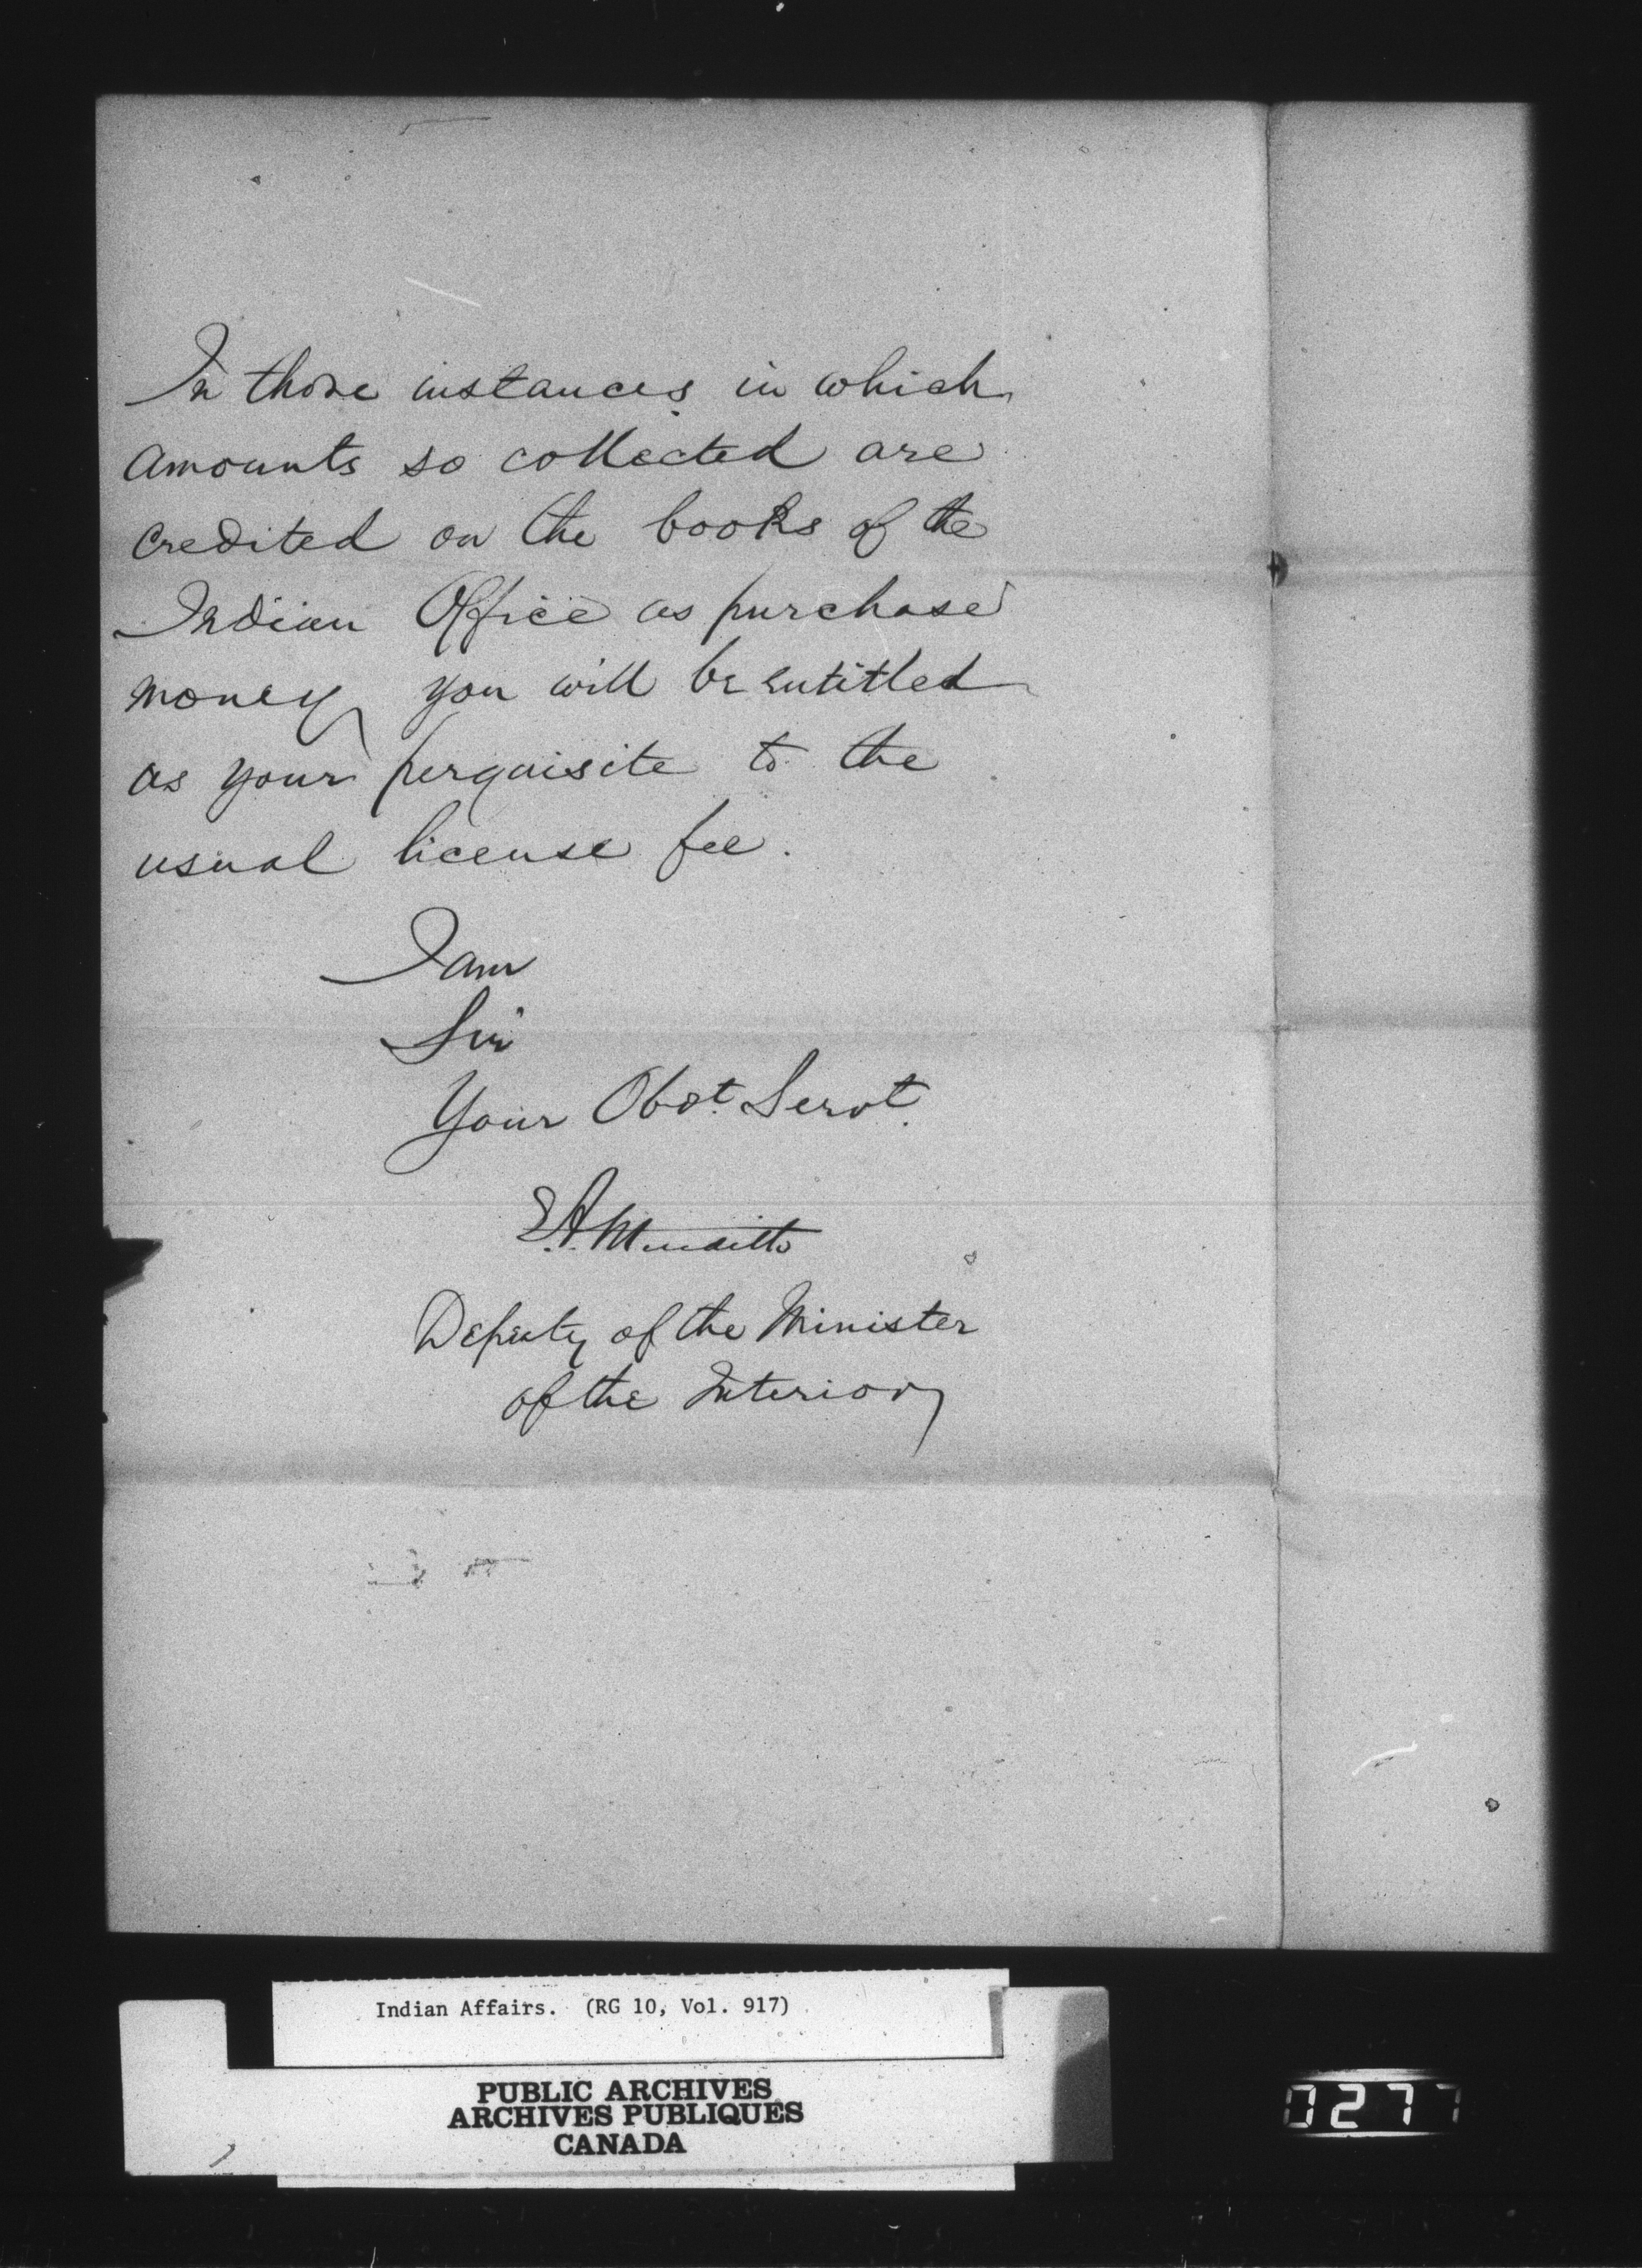 In those instances in which
amounts so collected are
credited on the books of the
Indian Office as purchase
money you will be entitled
as your perquisite to the
usual license fee.
I am
Sir
Your Obdt. Servt.
E.A. Meredith
Deputy of the Minister
of the Interior
Indian Affairs. (RG 10, Vol. 917)
PUBLIC ARCHIVES
ARCHIVES PUBLIQUES
CANADA
0277